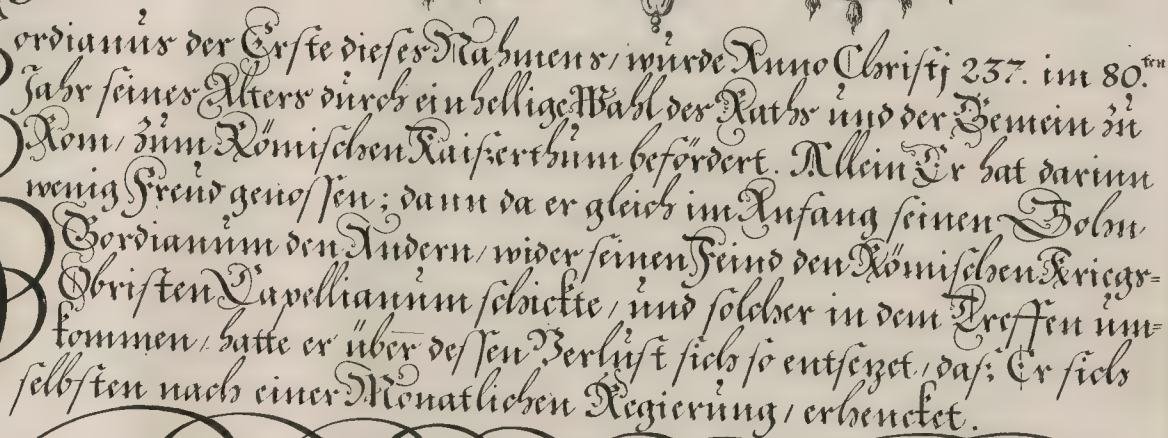 ordianus der Erste dieses Nahmens / wurde Anno Christj 237. im 80.ten
Jahr seines Alters durch einhellige Wahl des Raths und der Gemein zu
Rom / zum Römischen Kaiserthum befördert. Allein Er hat darinn
wenig Freud genossen; dann da er gleich im Anfang seinen Sohn /
Gordianum den Andern / wider seinen Feind den Römischen Kriegs=
Obristen Capellianum schickte / und solcher in dem Treffen um=
kommen / hatte er über dessen Verlust sich so entsezet / daß Er sich
selbsten nach einer Monatlichen Regierung / erhencket.